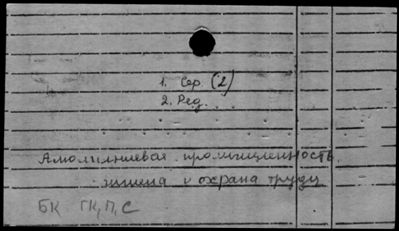 1. Сер. (2)
2. Ред.
Алюминиевая промышленность.
гигиена и охрана труда
БК ГК, П, С